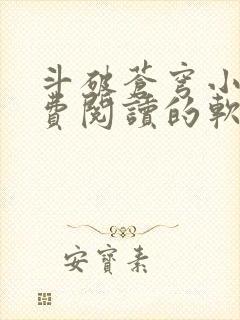 斗破蒼穹小
費閱讀的軟
安寶素